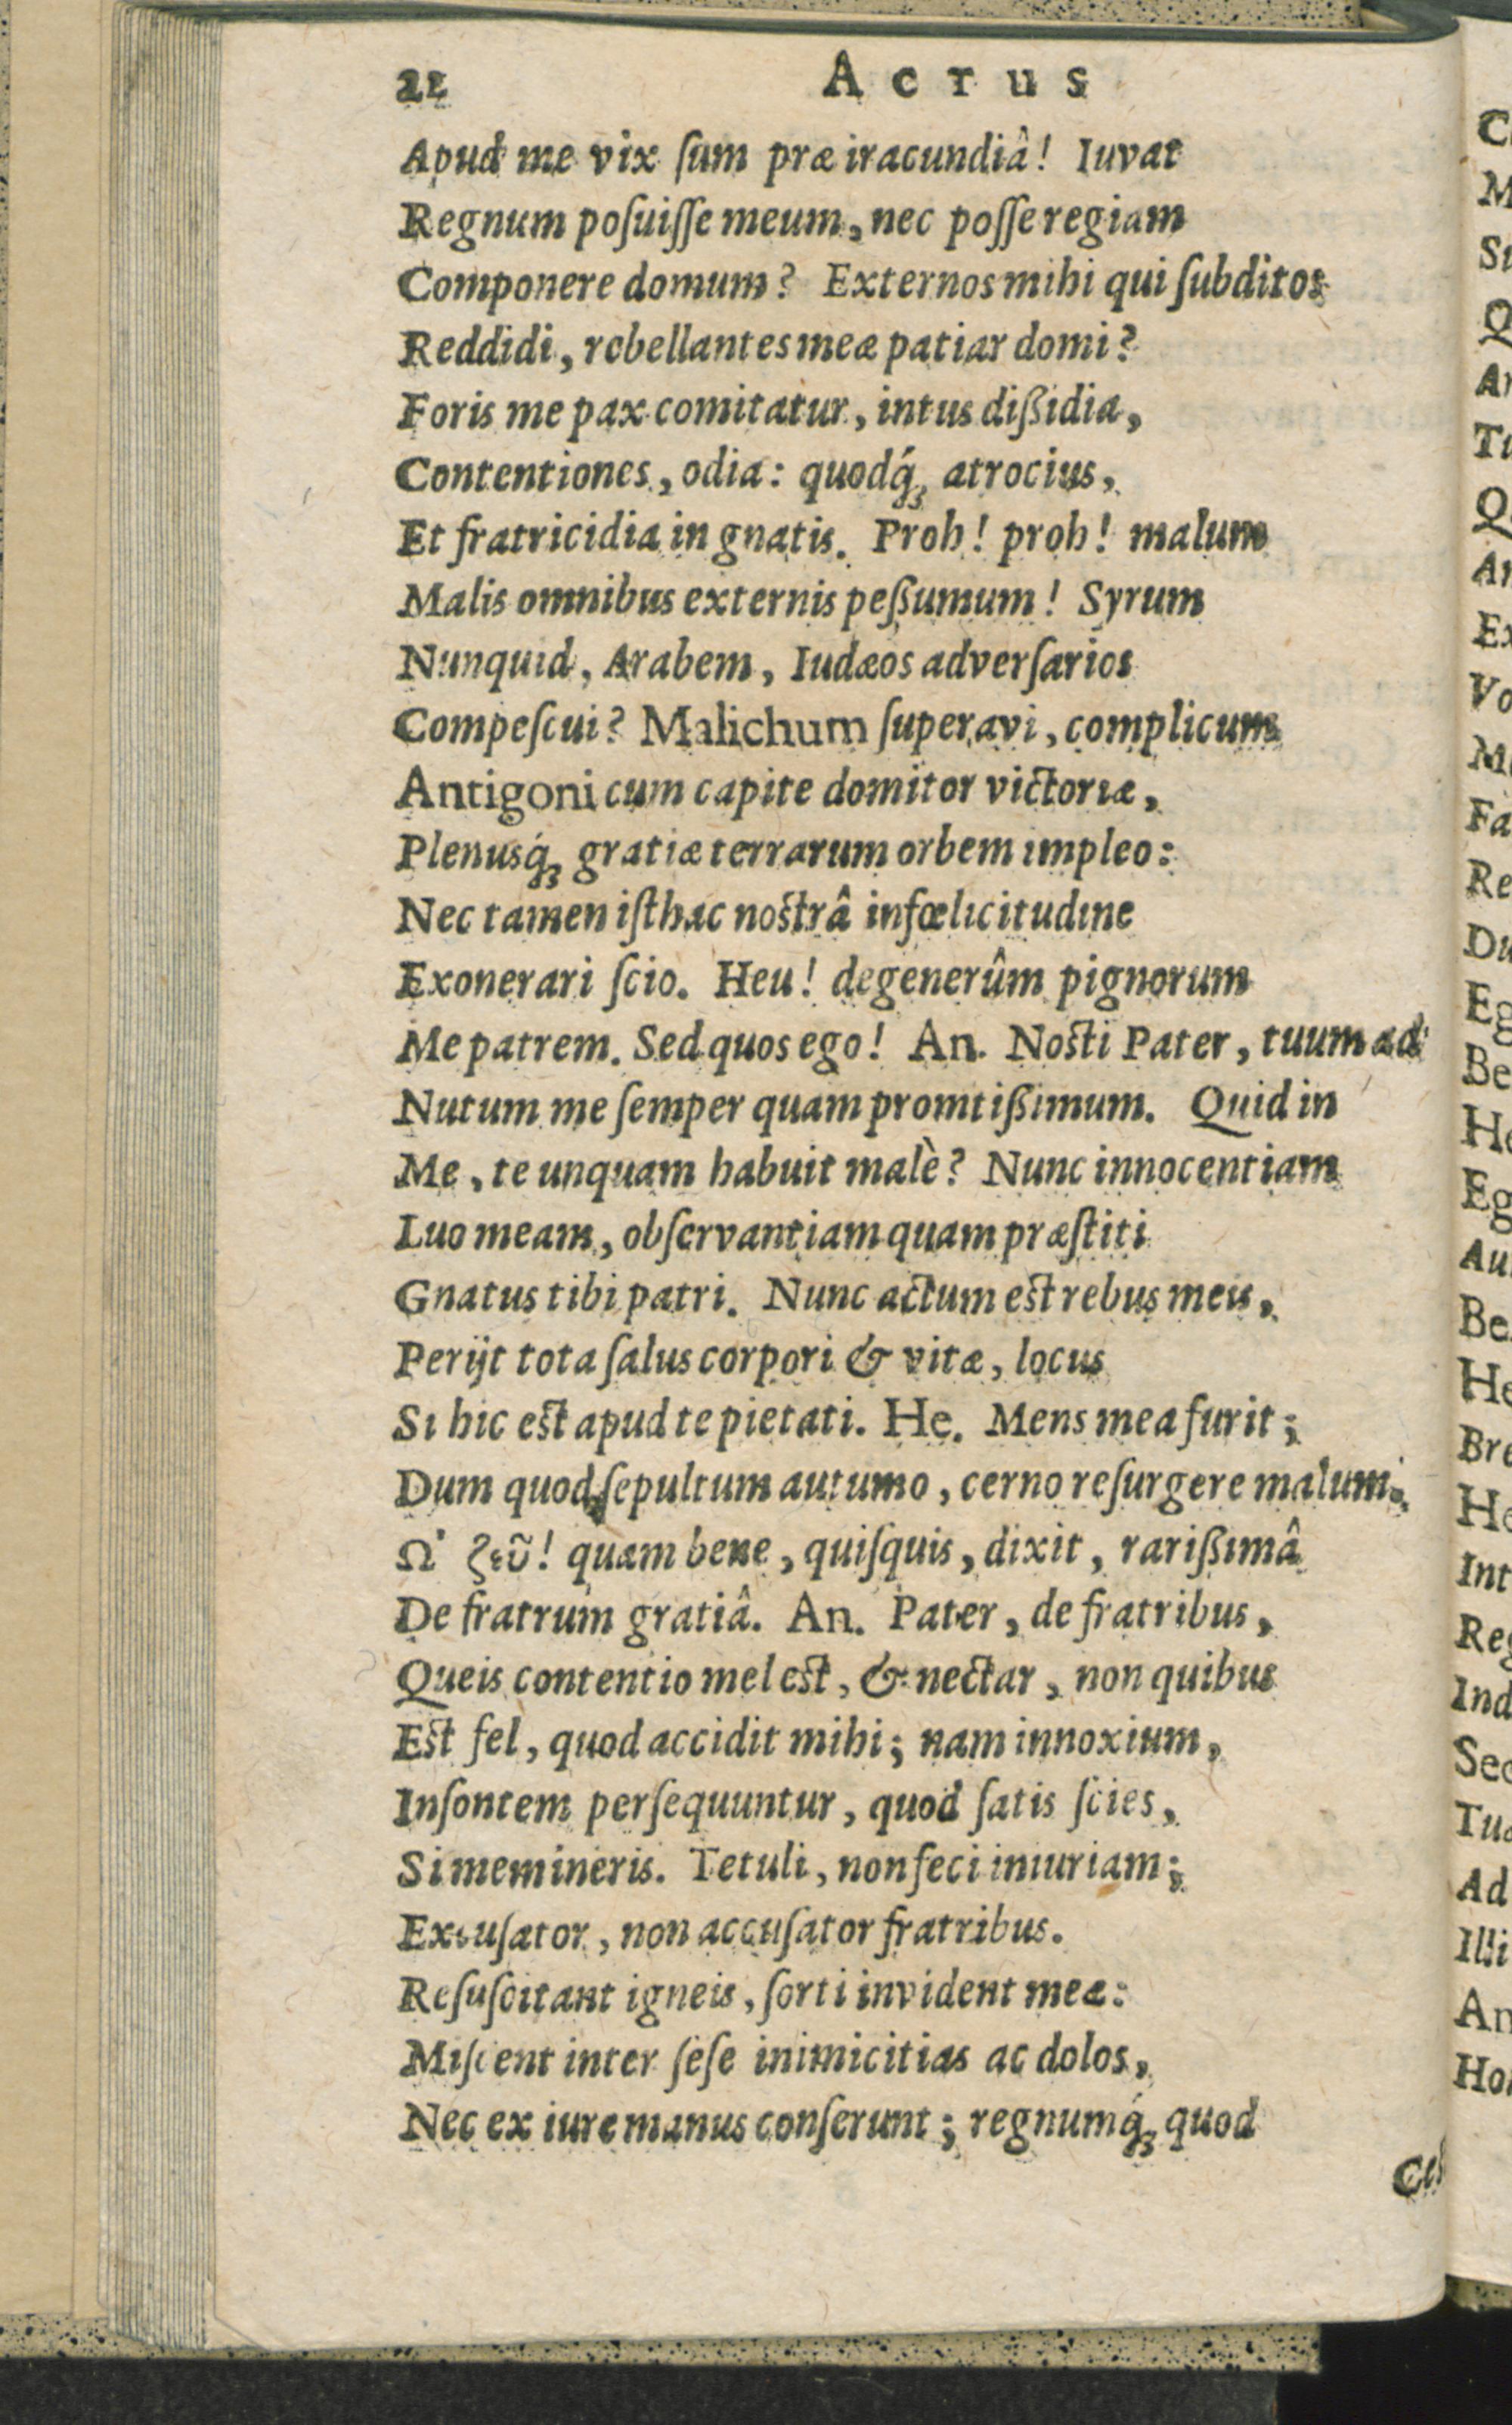 22 Actus
Apud me vix ſum præ iracundiâ! Iuvat
Regnum poſuiſſe meum, nec poſſe regiam
Componere domum? Externos mihi qui ſubditos
Reddidi, rebellantes meæ patiar domi?
Foris me pax comitatur, intus dißidia,
Contentiones, odia: quodq́ꝫ atrocius,
Et fratricidia in gnatis. Proh! proh! malum
Malis omnibus externis peßumum! Syrum
Nunquid, Arabem, Iudæos adverſarios
Compeſcui? Malichum ſuperavi, complicum
Antigoni cum capite domitor victoriæ,
Plenusq́ꝫ gratiæ terrarum orbem impleo:
Nec tamen iſthac noſtrâ infœlicitudine
Exonerari ſcio. Heu! degenerûm pignorum
Me patrem. Sed quos ego! An. Noſti Pater, tuum ad
Nutum me ſemper quam promtißimum. Quid in
Me, te unquam habuit malè? Nunc innocentiam
Luo meam, obſervantiam quam præſtiti
Gnatus tibi patri. Nunc actum eſt rebus meis,
Perijt tota ſalus corpori & vitæ, locus
Si hic eſt apud te pietati. He. Mens mea furit;
Dum quod ſepultum autumo, cerno reſurgere malum.
Ω' ζεῦ! quam bene, quiſquis, dixit, rarißimâ
De fratrum gratiâ. An. Pater, de fratribus,
Queis contentio mel eſt, & nectar, non quibus
Eſt fel, quod accidit mihi; nam innoxium,
Inſontem perſequuntur, quod ſatis ſcies,
Si memineris. Tetuli, non feci iniuriam;
Excuſator, non accuſator fratribus.
Reſuſcitant igneis, ſorti invident meæ:
Miſcent inter ſeſe inimicitias ac dolos,
Nec ex iure manus conſerunt; regnumq́ꝫ quod